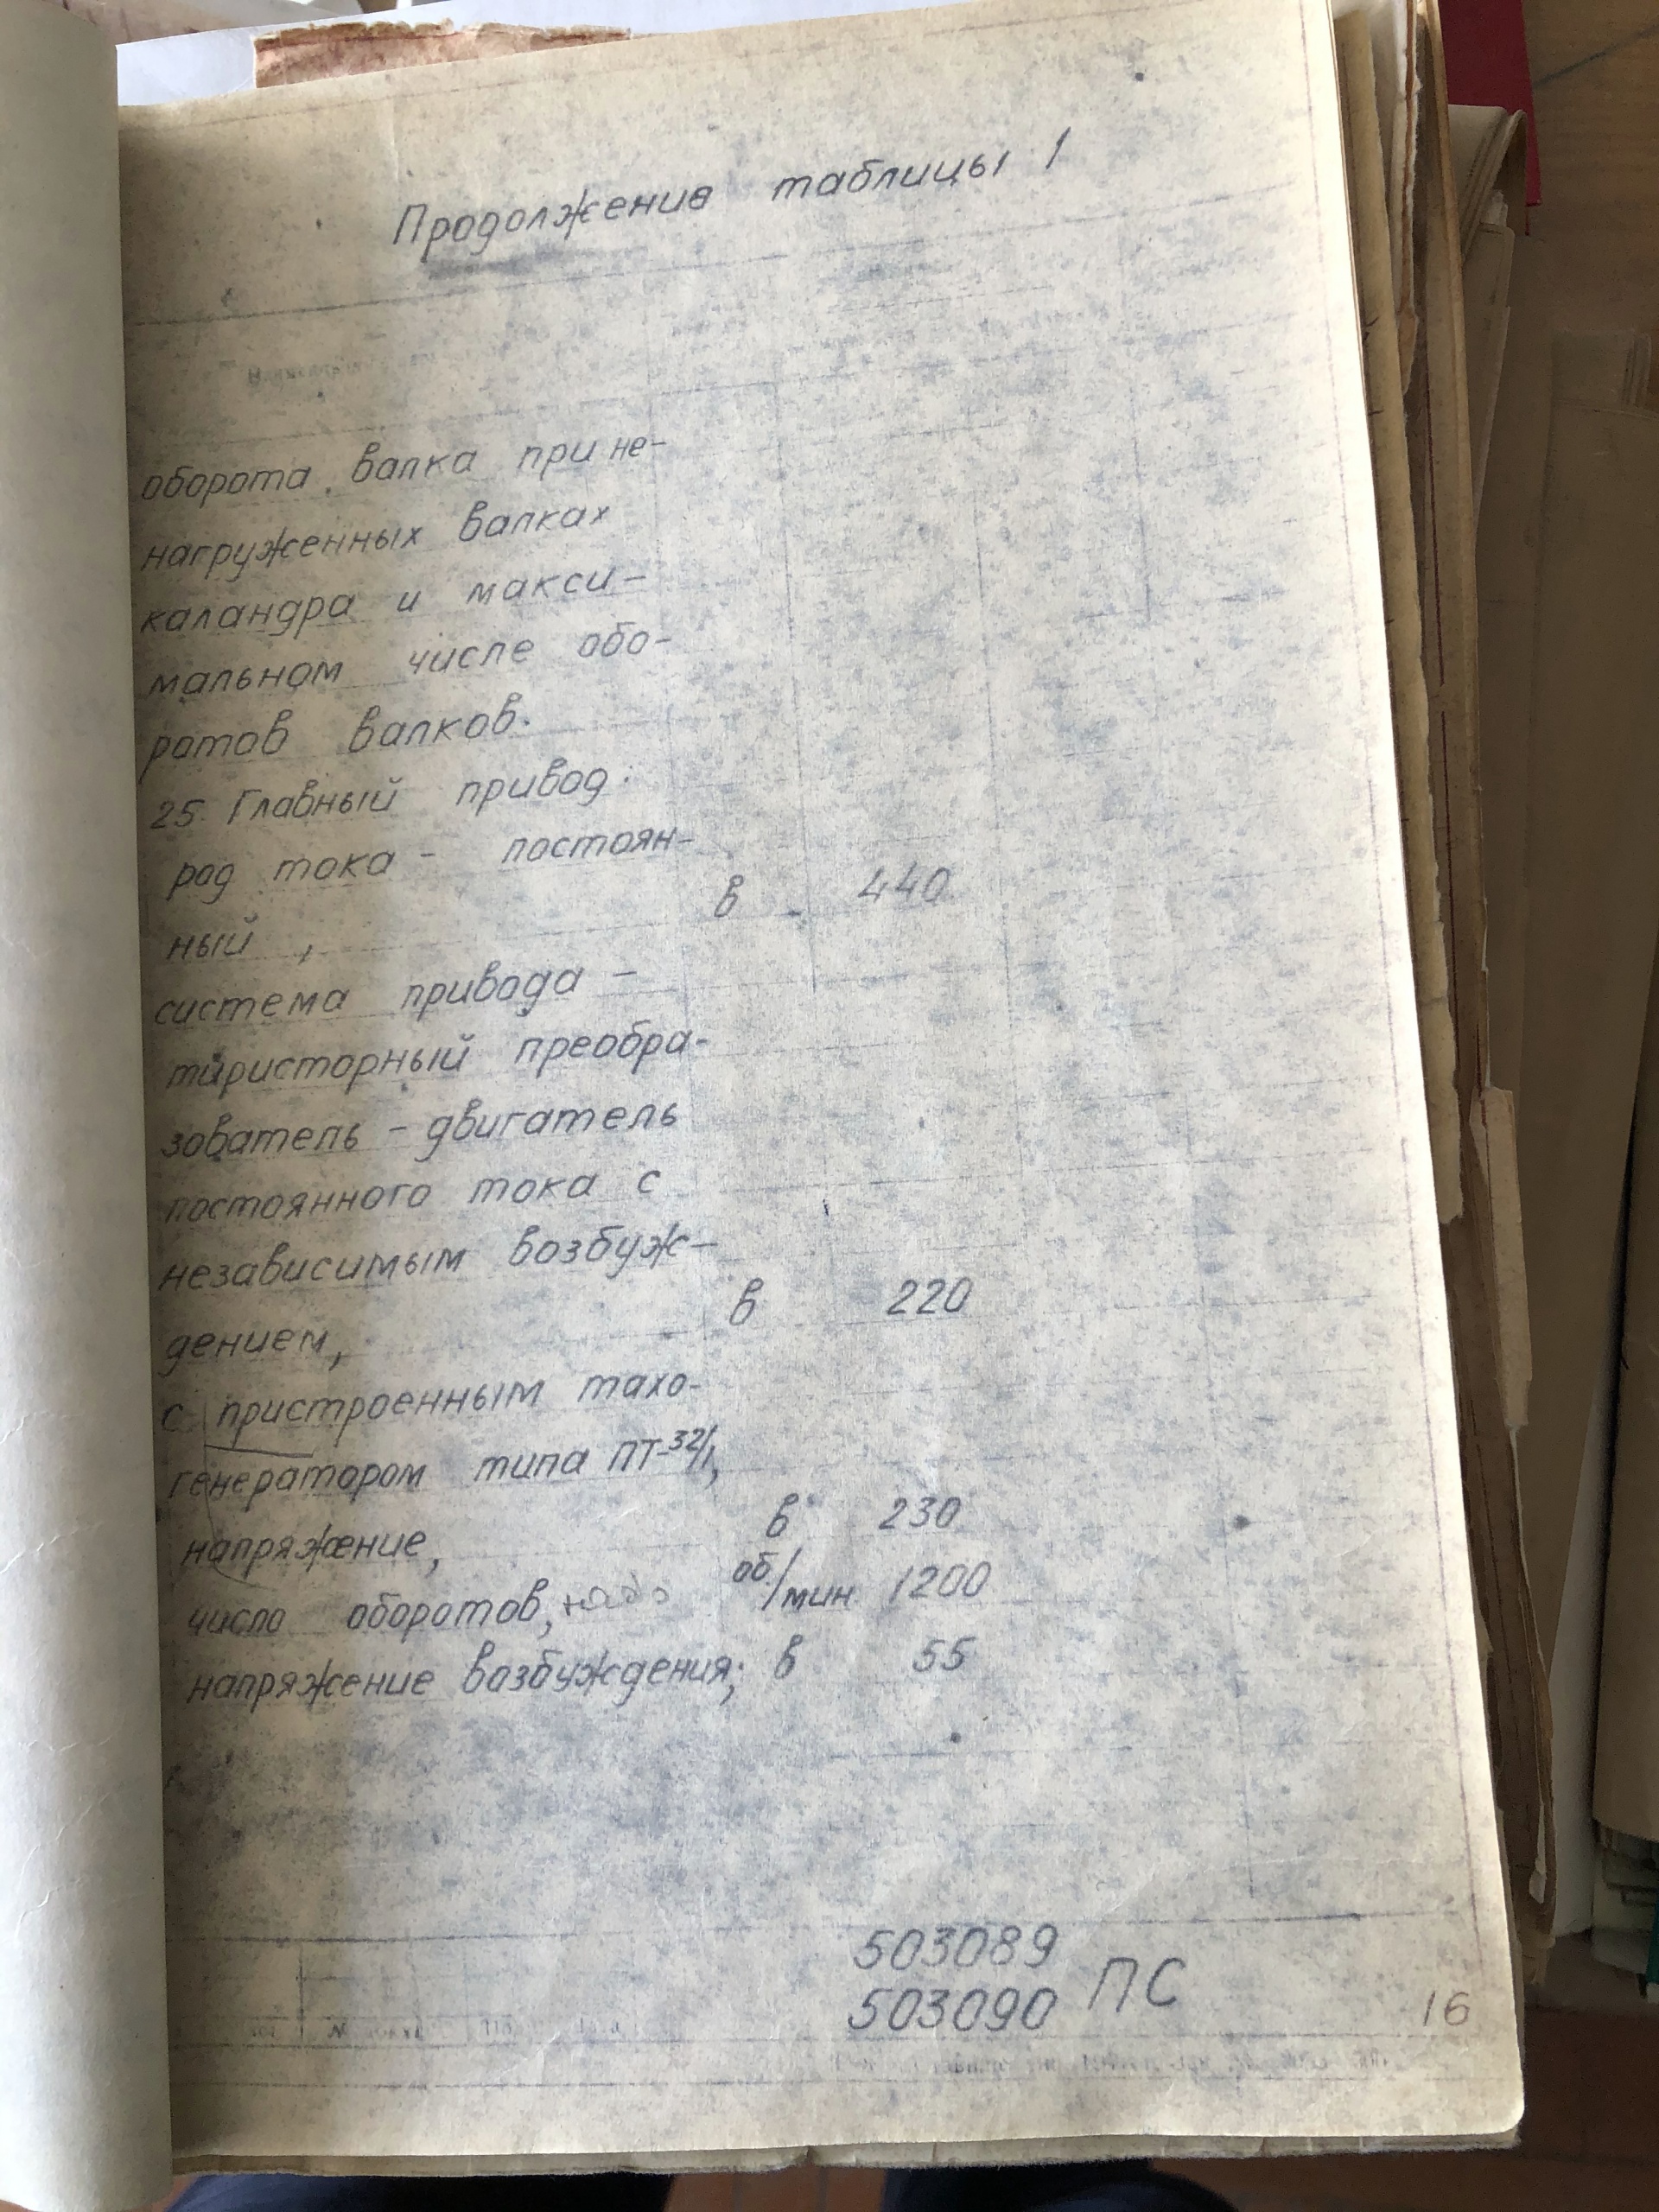 Продолжение таблицы 1
оборота валка при не-
нагруженных валках
каландра и макси-
мальном числе обо-
ротов валков.
25. Главный привод:
род тока - постоян-
ный, в 440
система привода -
тиристорный преобра-
зователь - двигатель
постоянного тока с
независимым возбуж-
дением, в 220
с пристроенным тахо-
генератором типа ПТ-32/1,
напряжение, в 230
число оборотов, надо об/мин 1200
напряжение возбуждения; в 55
503089
503090 ПС
16